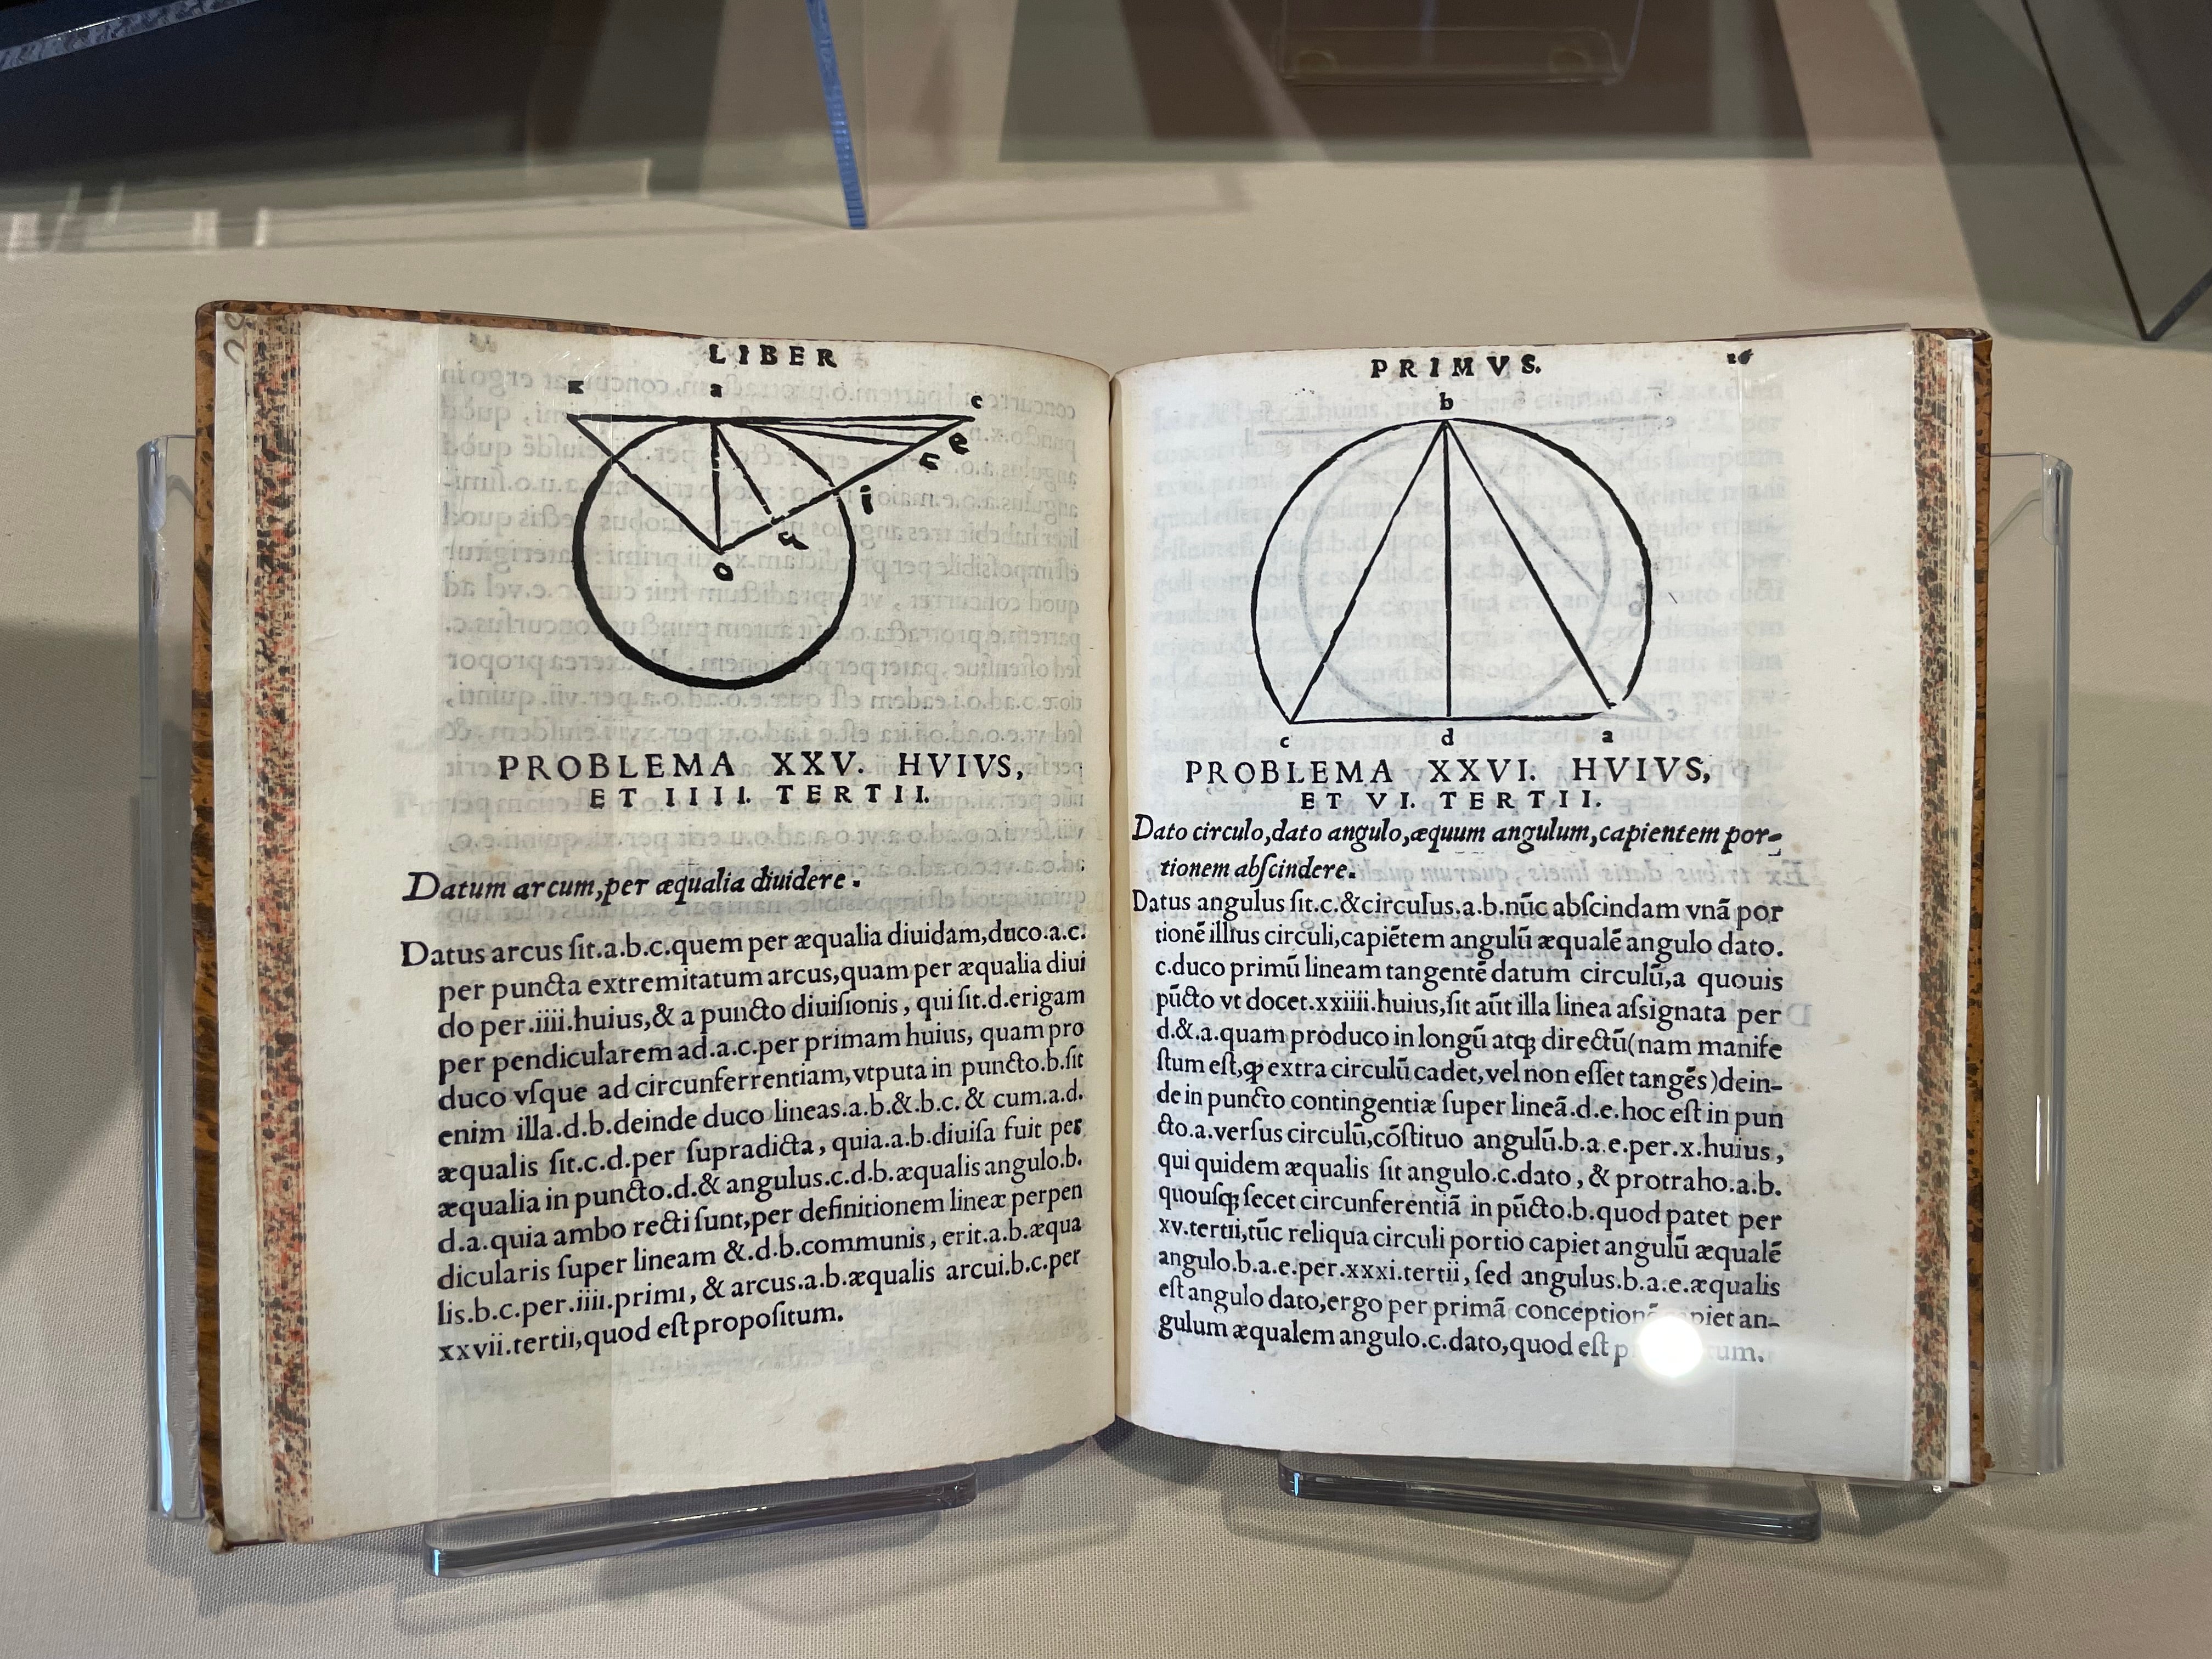 LIBER
a
c
e
c
i
u
o
PROBLEMA XXV. HVIVS,
ET IIII. TERTII.
Datum arcum, per æqualia diuidere.
Datus arcus ſit.a.b.c.quem per æqualia diuidam,duco.a.c.
per puncta extremitatum arcus,quam per æqualia diui
do per.iiii.huius,& a puncto diuiſionis, qui ſit.d.erigam
per pendicularem ad.a.c.per primam huius, quam pro
duco vſque ad circunferrentiam,vtputa in puncto.b.ſit
enim illa.d.b.deinde duco lineas.a.b.&.b.c. & cum.a.d.
æqualis ſit.c.d.per ſupradicta, quia.a.b.diuiſa fuit per
æqualia in puncto.d.& angulus.c.d.b.æqualis angulo.b.
d.a.quia ambo recti ſunt,per definitionem lineæ perpen
dicularis ſuper lineam &.d.b.communis, erit.a.b.æqua
lis.b.c.per.iiii.primi, & arcus.a.b.æqualis arcui.b.c.per
xxvii.tertii,quod eſt propoſitum.
PRIMVS.
b
c d a
PROBLEMA XXVI. HVIVS,
ET VI. TERTII.
Dato circulo,dato angulo,æquum angulum,capientem por-
tionem abſcindere.
Datus angulus ſit.c.&circulus.a.b.nūc abſcindam vnā por
tionē illius circuli,capiētem angulū æqualē angulo dato.
c.duco primū lineam tangentē datum circulū,a quouis
pūcto vt docet.xxiiii.huius,ſit aūt illa linea aſsignata per
d.&.a.quam produco in longū atqꝫ directū(nam manife
ſtum eſt,ꝙ extra circulū cadet,vel non eſſet tangēs)dein-
de in puncto contingentiæ ſuper lineā.d.e.hoc eſt in pun
cto.a.verſus circulū,cōſtituo angulū.b.a.e.per.x.huius,
qui quidem æqualis ſit angulo.c.dato, & protraho.a.b.
quouſqꝫ ſecet circunferentiā in pūcto.b.quod patet per
xv.tertii,tūc reliqua circuli portio capiet angulū æqualē
angulo.b.a.e.per.xxxi.tertii, ſed angulus.b.a.e.æqualis
eſt angulo dato,ergo per primā an-
gulum æqualem angulo.c.dato,quod eſt